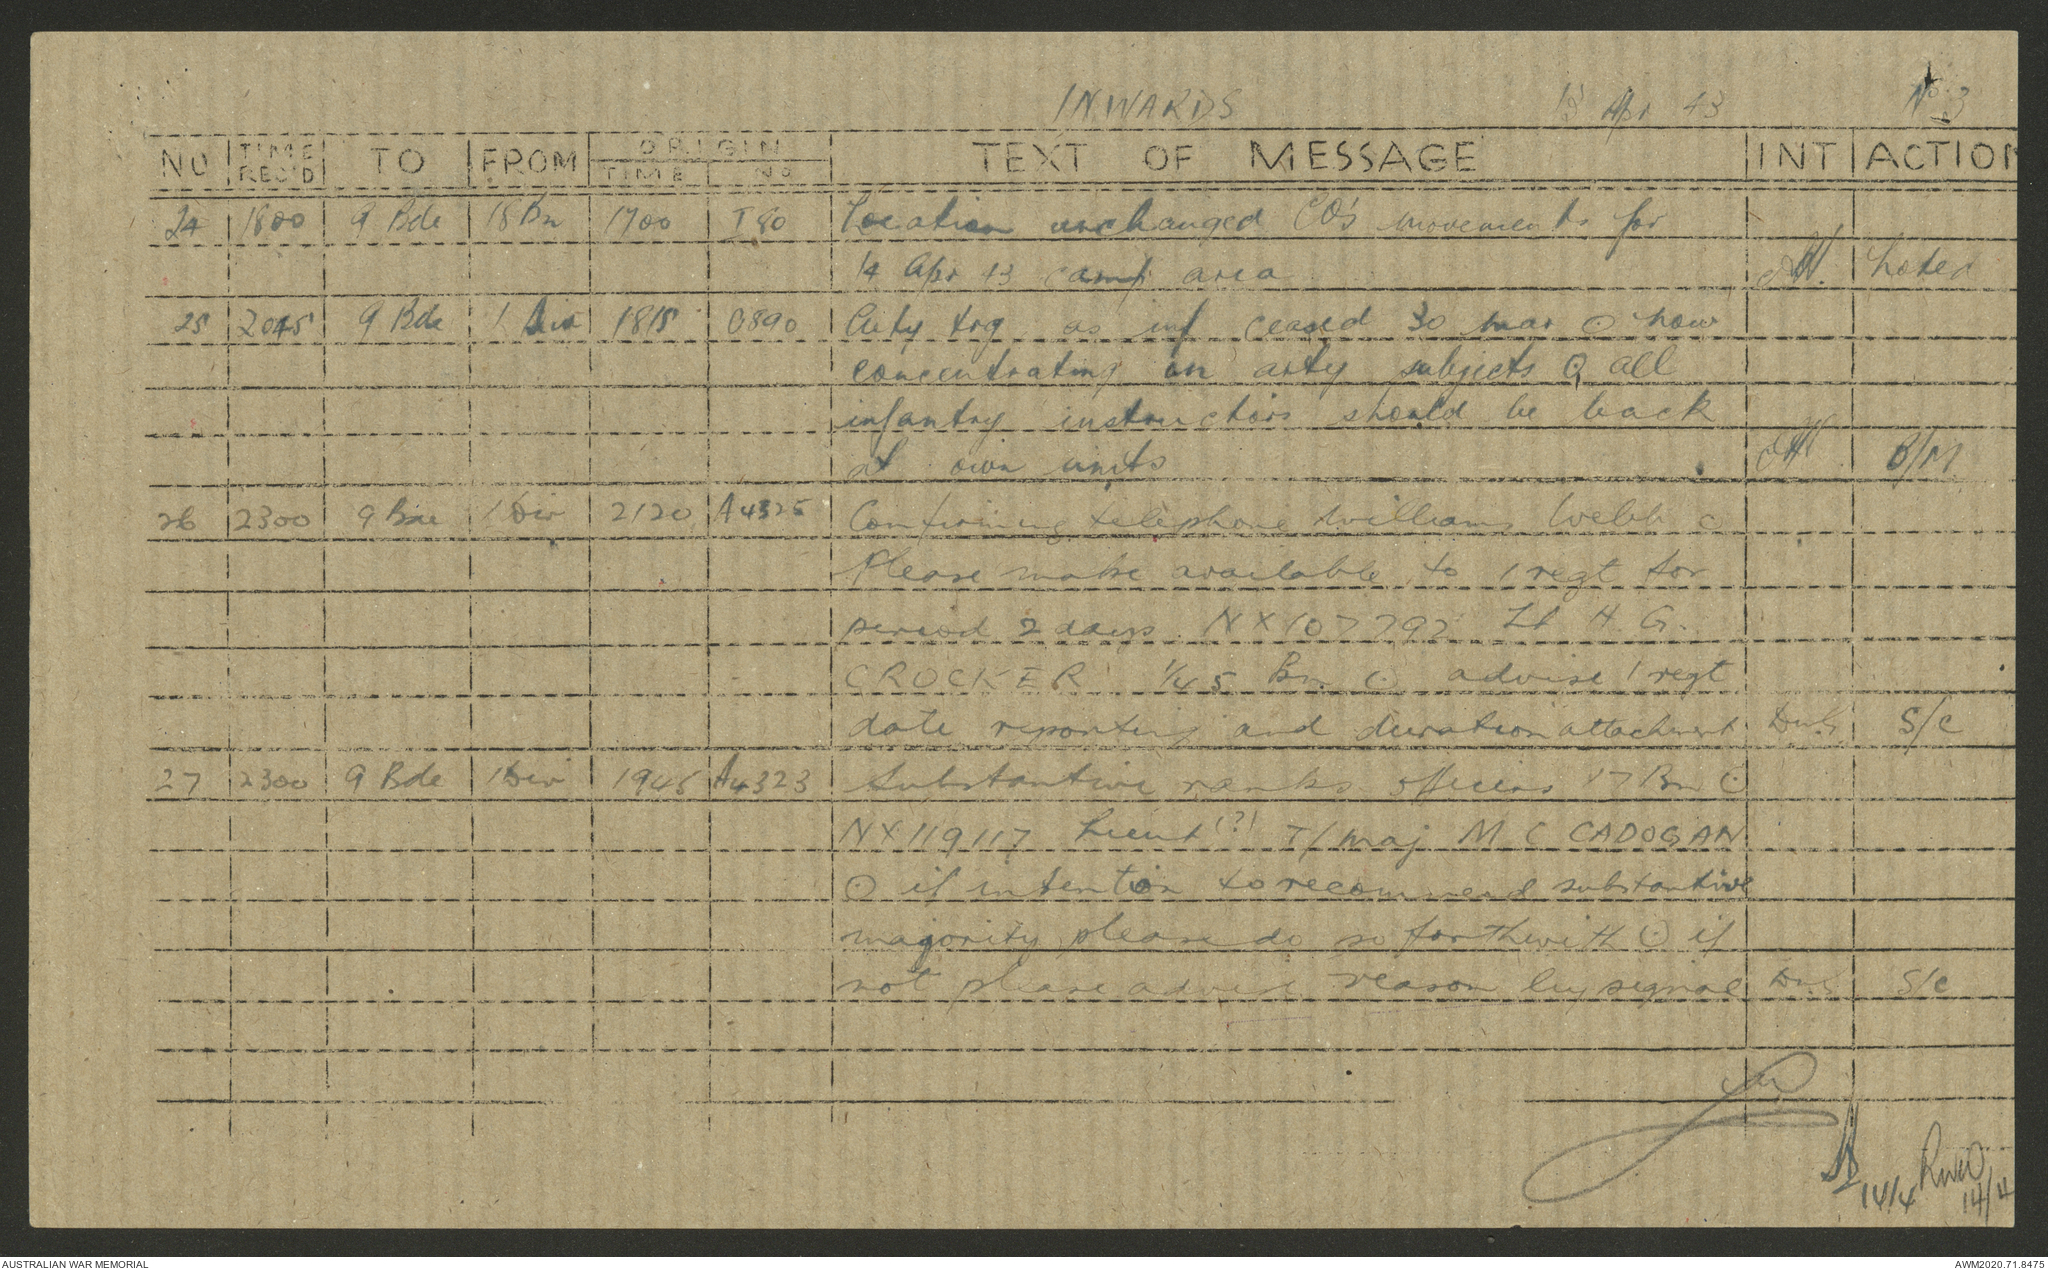 INWARDS 13 Apr 43 No. 3
NO TIME REC'D TO FROM ORIGIN TIME NO TEXT OF MESSAGE INT ACTION
24 1800 9 Bde 18 Bn 1700 I 80 Location unchanged CO's movements for
14 Apr 43 camp area noted
25 2045 9 Bde 1 Div 1815 0890 Arty trg as inf ceased 30 mar ⊙ now
concentrating on arty subjects ⊙ all
infantry instructors should be back
at own units B/M
26 2300 9 Bde 1 Div 2120 A4325 Confirming telephone Williams Webb ⊙
Please make available to 1 regt for
period 2 days NX107792 Lt H G.
CROCKER 1/45 Bn ⊙ advise 1 regt
date reporting and duration attachment S/C
27 2300 9 Bde 1 Div 1945 A4323 Substantive ranks officers 17 Bn ⊙
NX119117 Lieut (?) T/Maj M C CADOGAN
⊙ if intention to recommend substantive
majority please do so forthwith ⊙ if
not please advise reason by signal S/C
14/4 RWO
14/4
AUSTRALIAN WAR MEMORIAL AWM2020.71.8475